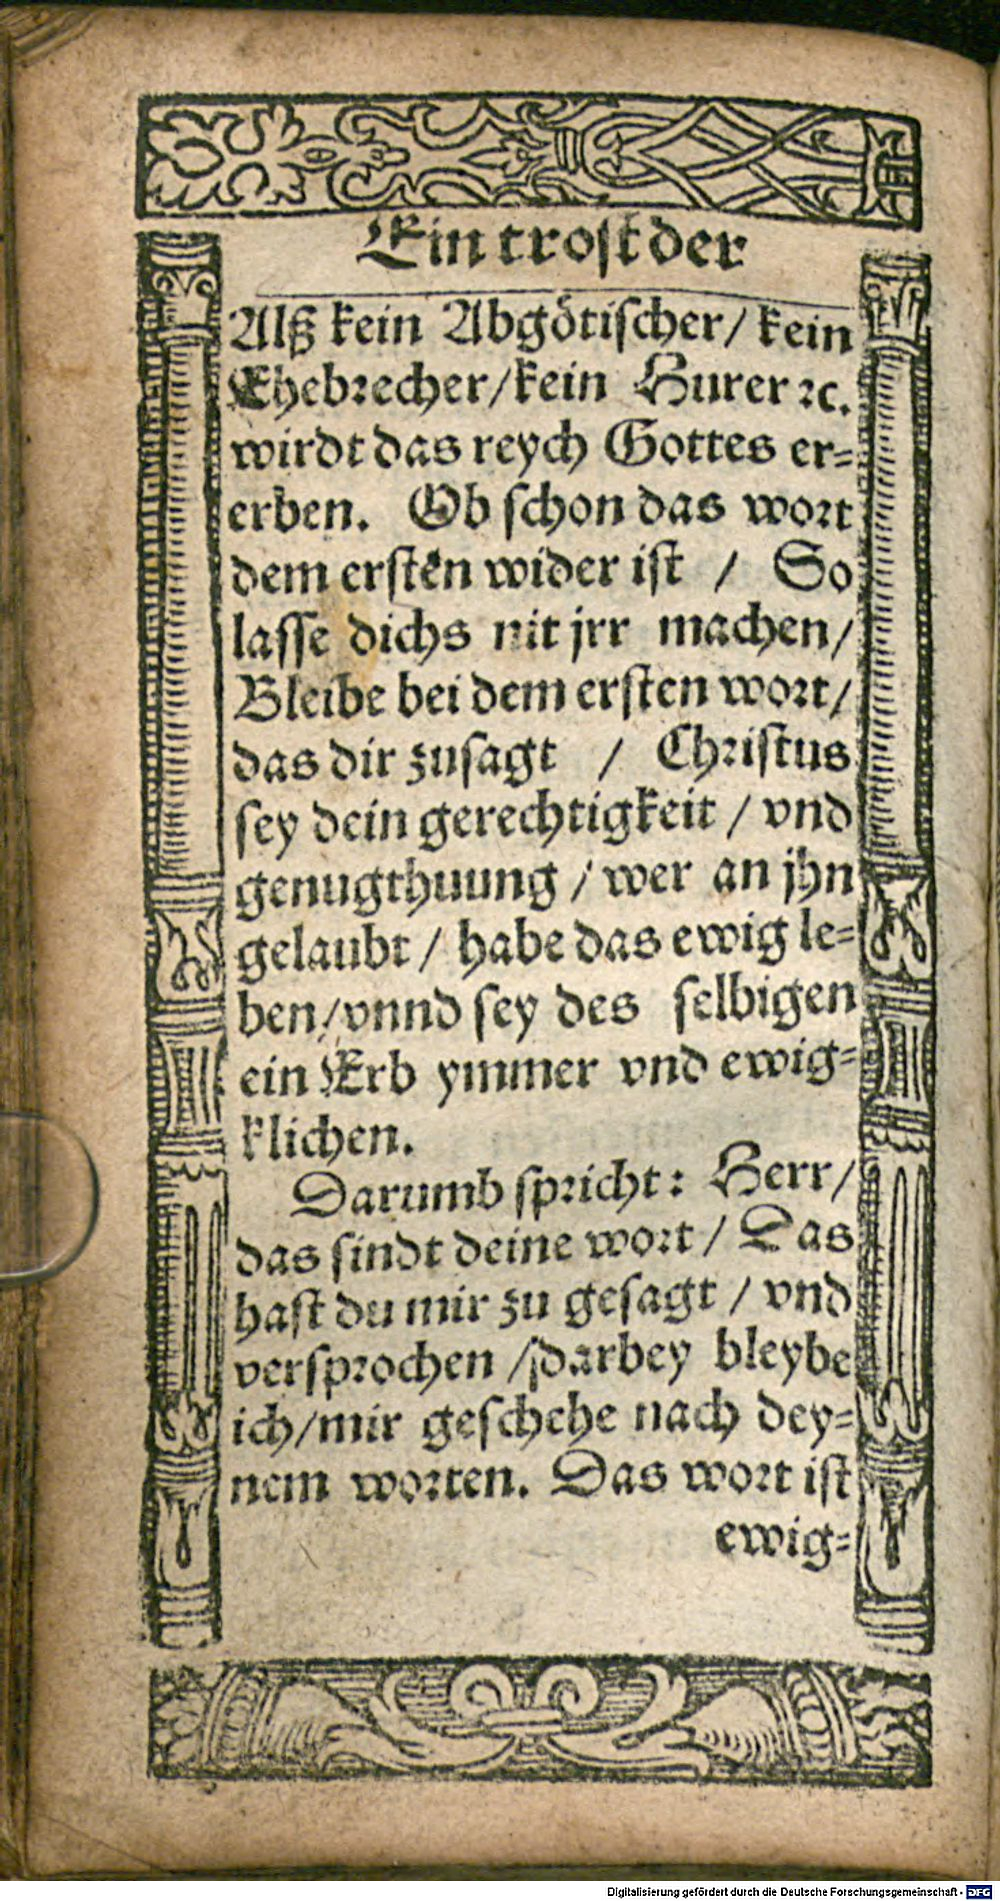 Ein trost der
Alß kein Abgötischer/ kein
Ehebrecher/kein Hurer ꝛc.
wirdt das reych Gottes er-
erben. Ob schon das wort
dem erstẽn wider ist / So
lasse dichs nit jrr machen/
Bleibe bei dem ersten wort/
das dir zusagt / Christus
sey dein gerechtigkeit / vnd
genugthuung / wer an jhn
gelaubt / habe das ewig le-
ben/vnnd sey des selbigen
ein Erb ymmer vnd ewig-
klichen.
Darumb spricht: Herr/
das sindt deine wort / Das
hast du mir zu gesagt / vnd
versprochen / darbey bleybe
ich/mir geschehe nach dey-
nem worten. Das wort ist
ewig-
Digitalisierung gefördert durch die Deutsche Forschungsgemeinschaft - DFG